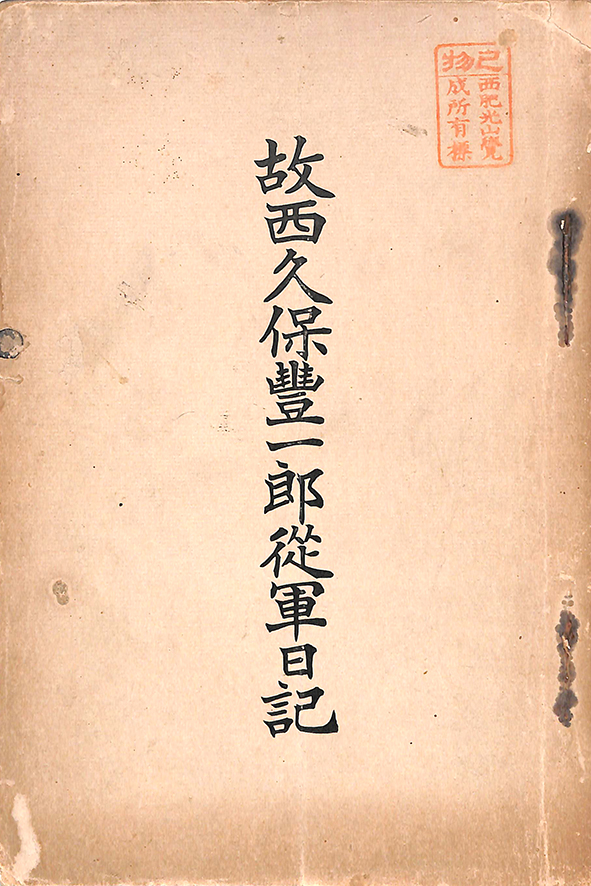 故西久保豐一郎從軍日記
己物
西肥光山覺
成所有標